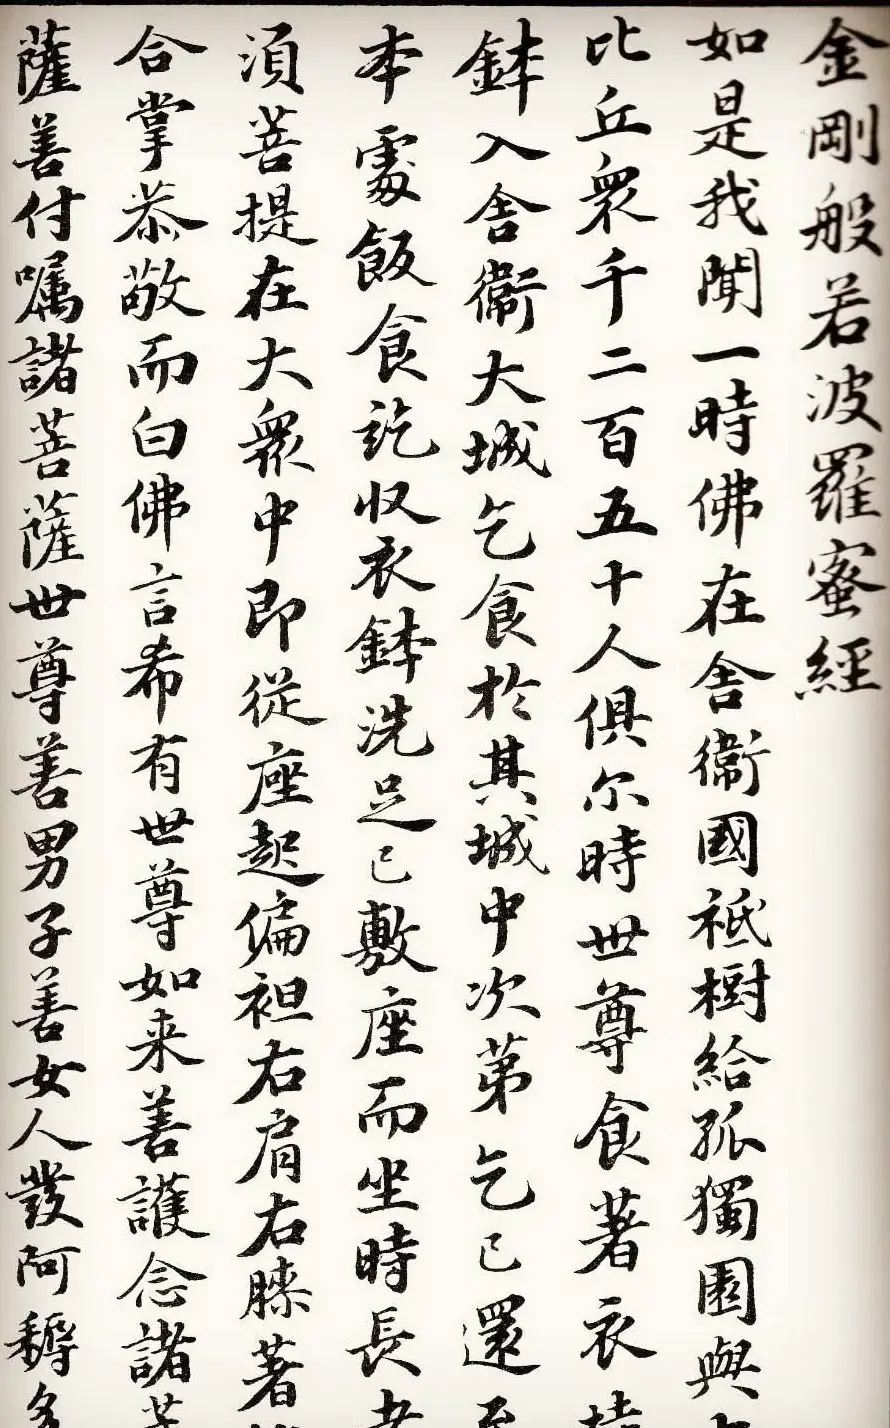 金剛般若波羅蜜經
如是我聞一時佛在舍衞國祇樹給孤獨園與
比丘衆千二百五十人俱尒時世尊食著衣持
鉢入舍衞大城乞食於其城中次第乞已還至
本處飯食訖収衣鉢洗足已敷座而坐時長老
須菩提在大衆中即從座起偏袒右肩右膝著
合掌恭敬而白佛言希有世尊如来善護念諸菩
薩善付嘱諸菩薩世尊善男子善女人發阿耨多